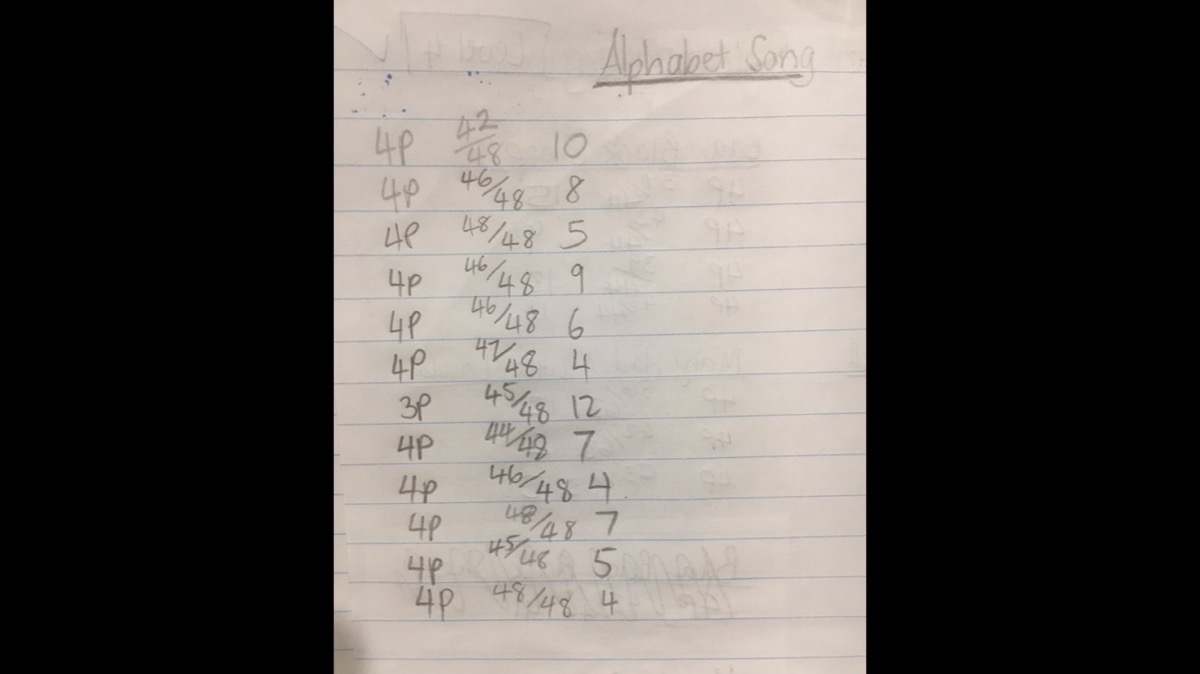 Alphabet Song
4P 42/48 10
4P 46/48 8
4P 48/48 5
4P 46/48 9
4P 46/48 6
4P 47/48 4
3P 45/48 12
4P 44/48 7
4P 46/48 4
4P 48/48 7
4P 45/48 5
4P 48/48 4